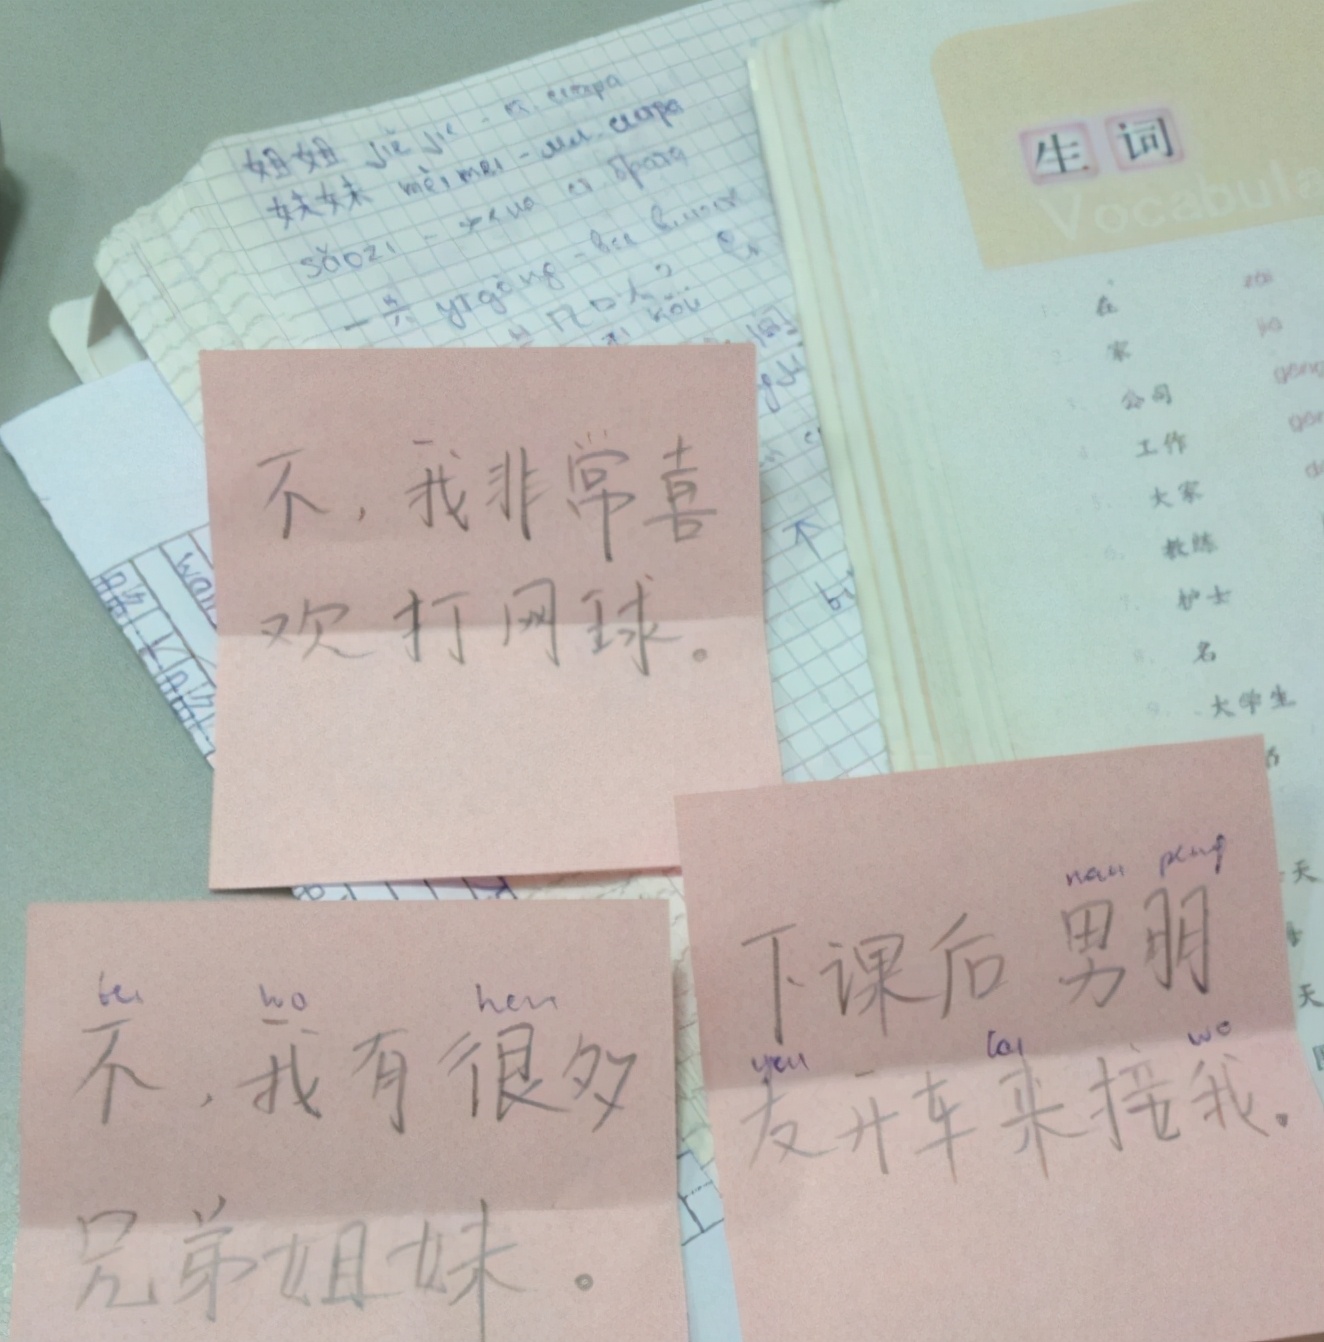 姐姐 jiě jie - ст. сестра
妹妹 mèi mei - мл. сестра
sǎozi - жена ст. брата
一共 yīgòng - все вместе
几口人?
kǒu
生词
Vocabula
在
家
公司
工作
大家
教练
护士
名
大学生
zài
jiā
gōng
gōng
不，我非常喜
欢打网球。
nan peng
下课后男朋
you lai wo
友开车来接我。
bu wo hen
不，我有很多
兄弟姐妹。
天
天